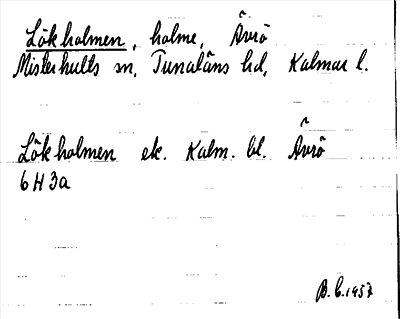 Lökholmen, holme, Ävrö
Misterhults sn, Tunaläns hd, Kalmar l.
Lökholmen ek. Kalm. bl. Ävrö
6 H 3a
B.C. 1957